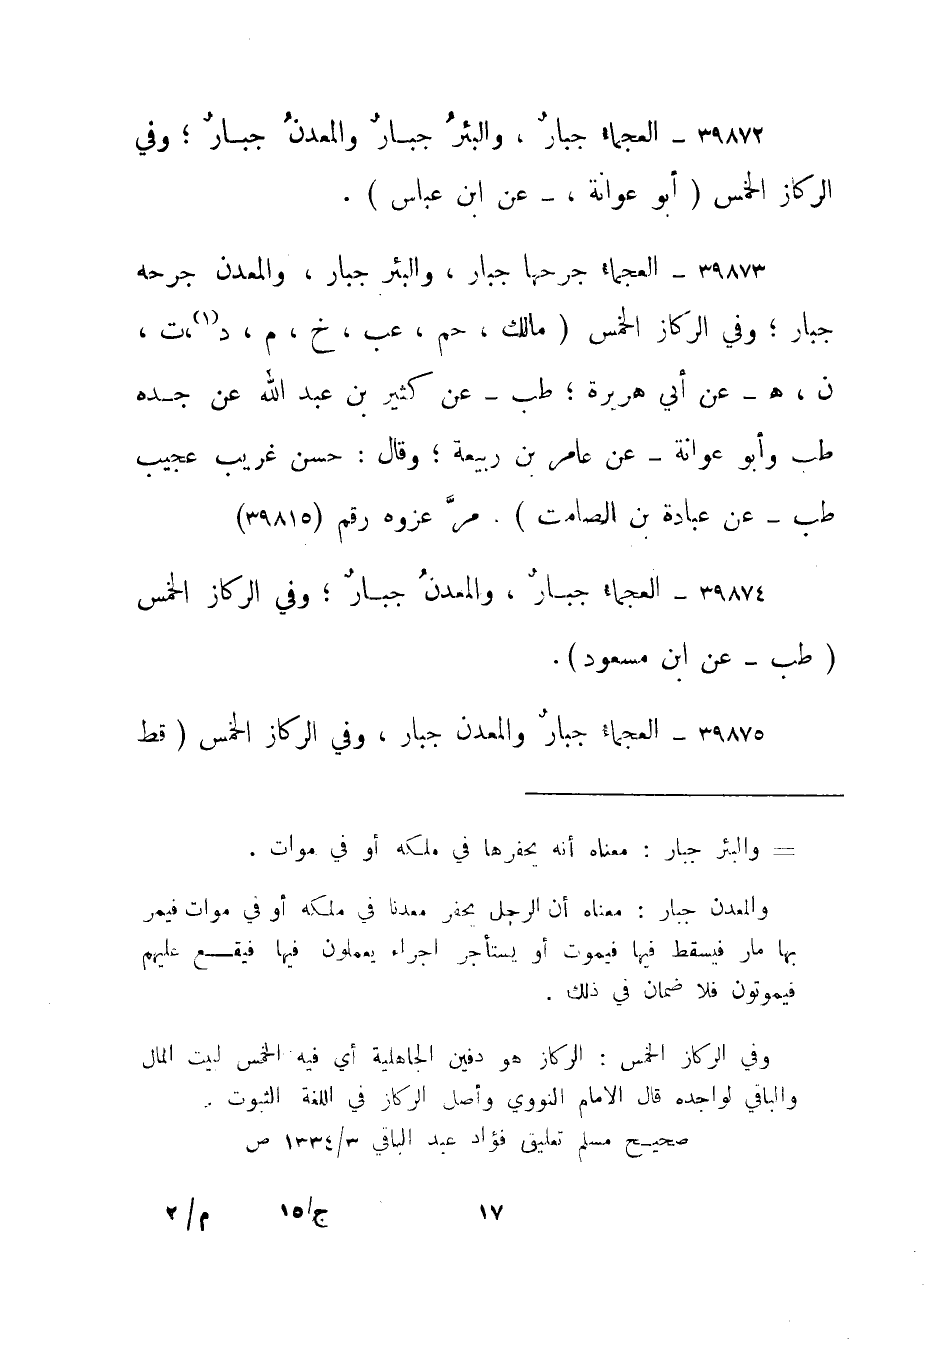 ٣٩٨٧٢ ـ العجماء جبارٌ ، والبئرُ جبـارٌ والمعدنُ جبـارٌ ؛ وفي
الركاز الخمس ( أبو عوانة ، ـ عن ابن عباس ) .
٣٩٨٧٣ ـ العجماء جرحها جبار ، والبئر جبار ، والمعدن جرحه
جبار ؛ وفي الركاز الخمس ( مالك ، حم ، عب ، خ ، م ، د(١)،ت ،
ن ، ه ـ عن أبي هريرة ؛ طب ـ عن كثير بن عبد الله عن جـده
طب وأبو عوانة ـ عن عامر بن ربيعة ؛ وقال : حسن غريب عجيب
طب ـ عن عبادة بن الصامت ) . مرَّ عزوه رقم (٣٩٨١٥)
٣٩٨٧٤ ـ العجماء جبـارٌ ، والمعدنُ جبـارٌ ؛ وفي الركاز الخمس
( طب ـ عن ابن مسعود ) .
٣٩٨٧٥ ـ العجماء جبارٌ والمعدن جبار ، وفي الركاز الخمس ( قط
= والبئر جبار : معناه أنه يحفرها في ملكه أو في موات .
والمعدن جبار : معناه أن الرجل يحفر معدنا في ملكه أو في موات فيمر
بها مار فيسقط فيها فيموت أو يستأجر اجراء يعملون فيها فيقـع عليهم
فيموتون فلا ضمان في ذلك .
وفي الركاز الخمس : الركاز هو دفين الجاهلية أي فيه الخمس لبيت المال
والباقي لواجده قال الامام النووي وأصل الركاز في اللغة الثبوت .
صحيـح مسلم تعليق فؤاد عبد الباقي ١٣٣٤/٣ ص
١٧ ج/١٥ م/٢